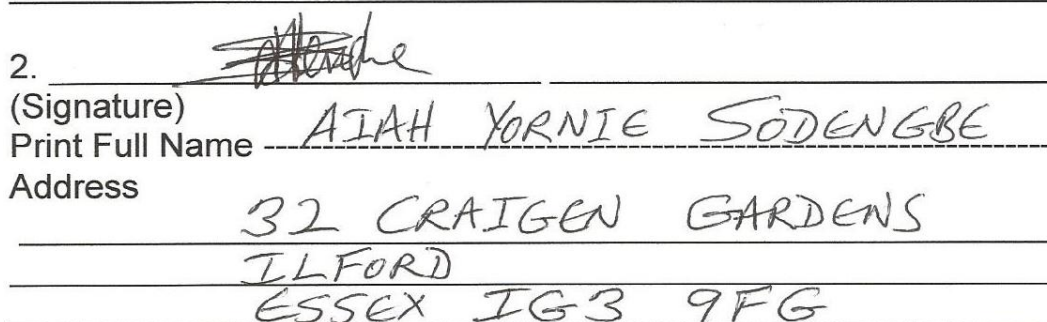 2.
(Signature)
Print Full Name AIAH YORNIE SODENGBE
Address
32 CRAIGEN GARDENS
ILFORD
ESSEX IG3 9FG